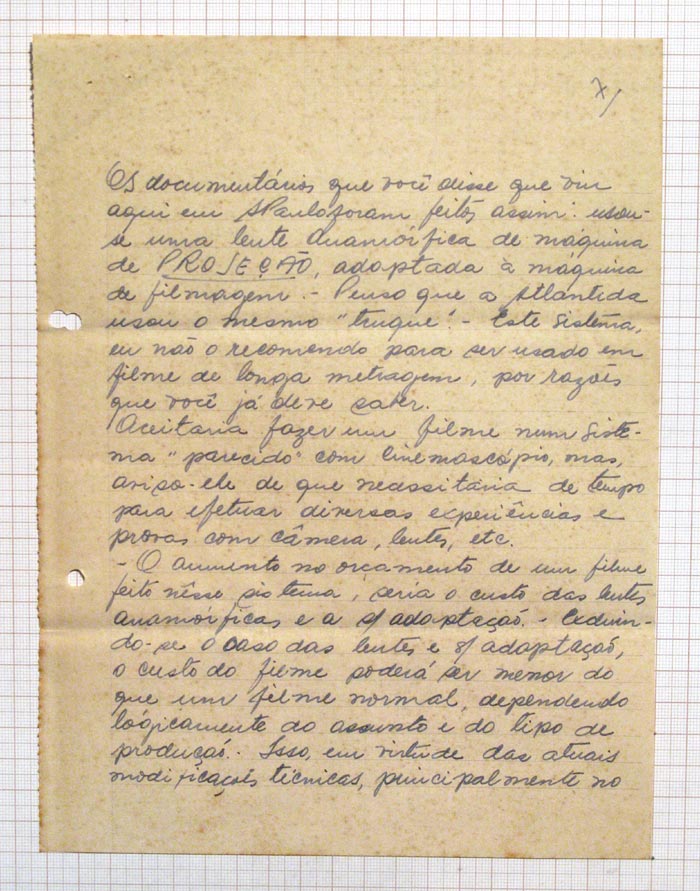 7/
Os documentários que você disse que viu
aqui em SPaulo foram feitos assim: usou-
se uma lente anamórfica de máquina
de PROJEÇÃO, adaptada à máquina
de filmagem. - Penso que a Atlantida
usou o mesmo "truque". - Este sistema,
eu não o recomendo para ser usado em
filme de longa metragem, por razões
que você já deve saber.
Aceitaria fazer um filme num siste-
ma "parecido" com Cinemascópio, mas,
aviso-ele de que necessitaria de tempo
para efetuar diversas experiências e
provas com câmera, lentes, etc.
- O aumento no orçamento de um filme
feito nêsse sistema, seria o custo das lentes
anamórficas e a s/ adaptação. - Excluin-
do-se o caso das lentes e s/ adaptação,
o custo do filme poderá ser menor do
que um filme normal, dependendo
lógicamente do assunto e do tipo de
produção. - Isso, em virtude das atuais
modificações técnicas, principalmente no